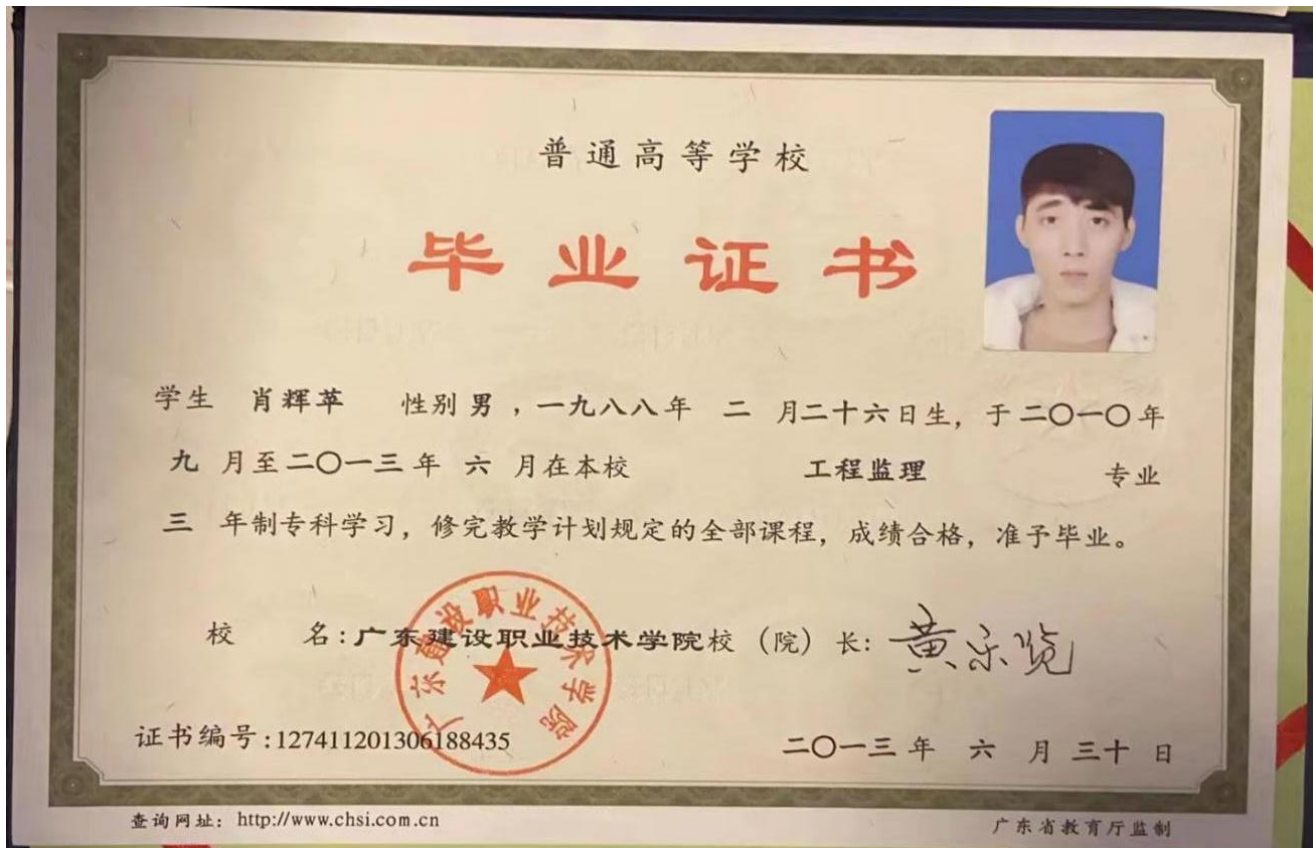 普通高等学校
毕业证书
学生 肖辉苹 性别 男 ，一九八八年 二 月二十六日生，于二〇一〇年
九 月至二〇一三年 六 月在本校 工程监理 专业
三 年制专科学习，修完教学计划规定的全部课程，成绩合格，准予毕业。
广东建设职业技术学院
校 名：广东建设职业技术学院校（院）长：黄乐览
证书编号：127411201306188435
二〇一三年 六 月 三十 日
查询网址：http://www.chsi.com.cn
广东省教育厅监制